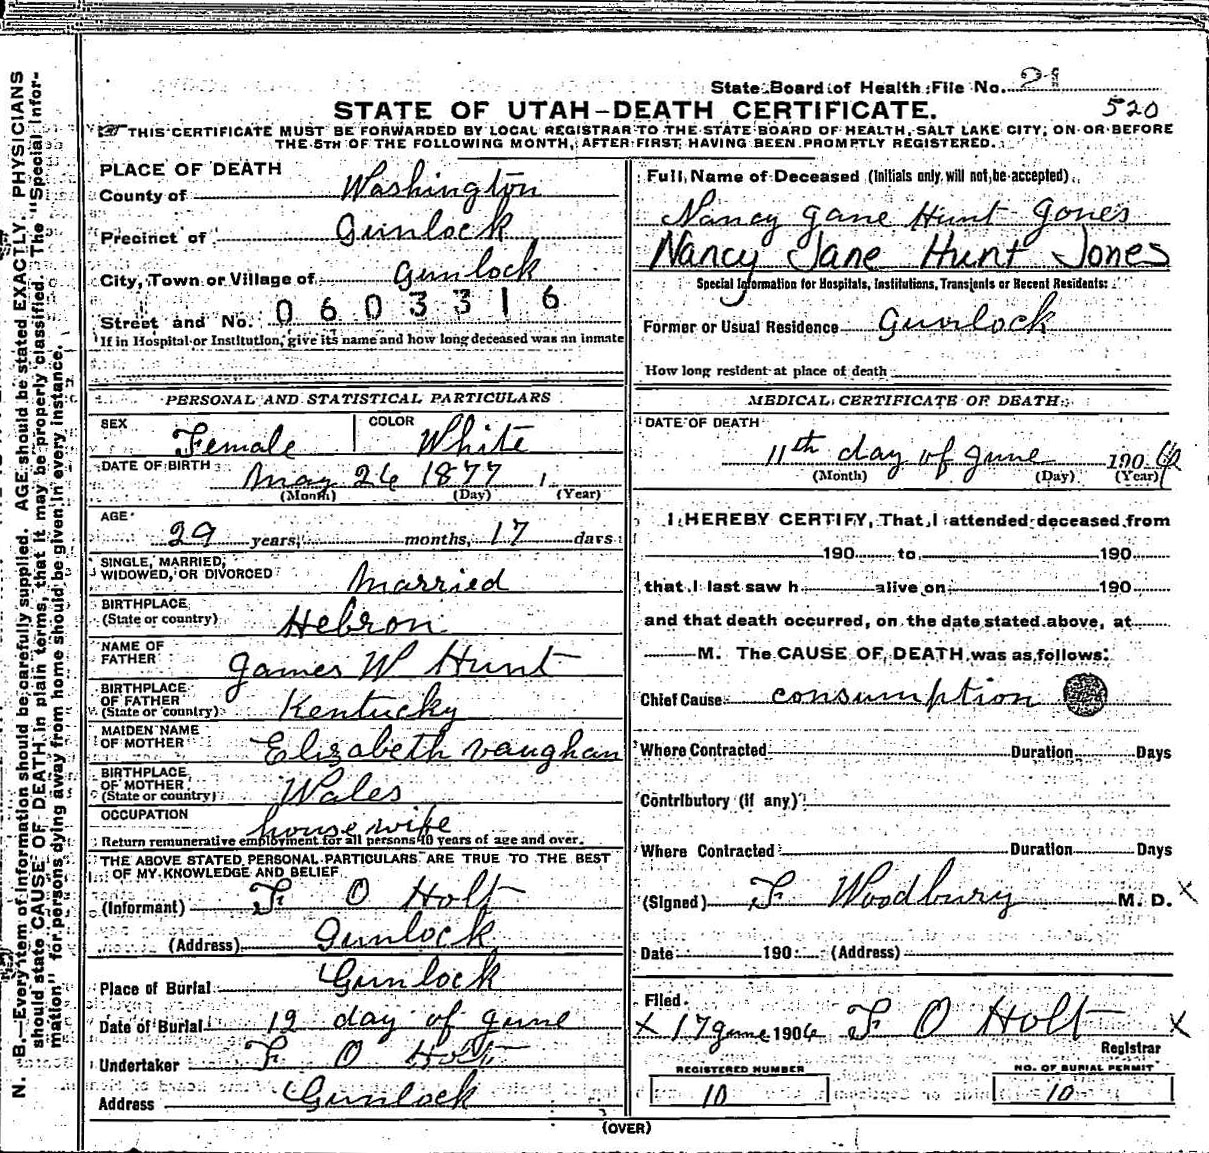 State Board of Health File No. 21
STATE OF UTAH-DEATH CERTIFICATE.
520
THIS CERTIFICATE MUST BE FORWARDED BY LOCAL REGISTRAR TO THE STATE BOARD OF HEALTH, SALT LAKE CITY, ON OR BEFORE
THE 5TH OF THE FOLLOWING MONTH, AFTER FIRST HAVING BEEN PROMPTLY REGISTERED.
N. B.—Every item of Information should be carefully supplied. AGE should be stated EXACTLY. PHYSICIANS
should state CAUSE OF DEATH in plain terms, that it may be properly classified. The "Special Infor-
mation" for persons dying away from home should be given in every instance.
PLACE OF DEATH
County of Washington
Precinct of Gunlock
City, Town or Village of Gunlock
Street and No. 0603316
If in Hospital or Institution, give its name and how long deceased was an inmate
PERSONAL AND STATISTICAL PARTICULARS
SEX Female COLOR White
DATE OF BIRTH May 26 1877 1
(Month) (Day) (Year)
AGE 29 years, months, 17 days
SINGLE, MARRIED,
WIDOWED, OR DIVORCED Married
BIRTHPLACE
(State or country) Hebron
NAME OF
FATHER James W Hunt
BIRTHPLACE
OF FATHER
(State or country) Kentucky
MAIDEN NAME
OF MOTHER Elizabeth Vaughan
BIRTHPLACE
OF MOTHER
(State or country) Wales
OCCUPATION house wife
Return remunerative employment for all persons 10 years of age and over.
THE ABOVE STATED PERSONAL PARTICULARS ARE TRUE TO THE BEST
OF MY KNOWLEDGE AND BELIEF
(Informant) F O Holt
(Address) Gunlock
Place of Burial Gunlock
Date of Burial 12 day of June
Undertaker F O Holt
Address Gunlock
Full Name of Deceased (Initials only will not be accepted)
Nancy Jane Hunt Jones
Nancy Jane Hunt Jones
Special Information for Hospitals, Institutions, Transients or Recent Residents:
Former or Usual Residence Gunlock
How long resident at place of death
MEDICAL CERTIFICATE OF DEATH
DATE OF DEATH
11th day of June 1906
(Month) (Day) (Year)
I HEREBY CERTIFY, That I attended deceased from
190 to 190
that I last saw h alive on 190
and that death occurred, on the date stated above, at
M. The CAUSE OF DEATH was as follows:
Chief Cause consumption
Where Contracted Duration Days
Contributory (if any)
Where Contracted Duration Days
(Signed) F Woodbury M. D. X
Date 190 (Address)
Filed
X 17 June 1906 F O Holt X
Registrar
REGISTERED NUMBER
10
NO. OF BURIAL PERMIT
10
(OVER)